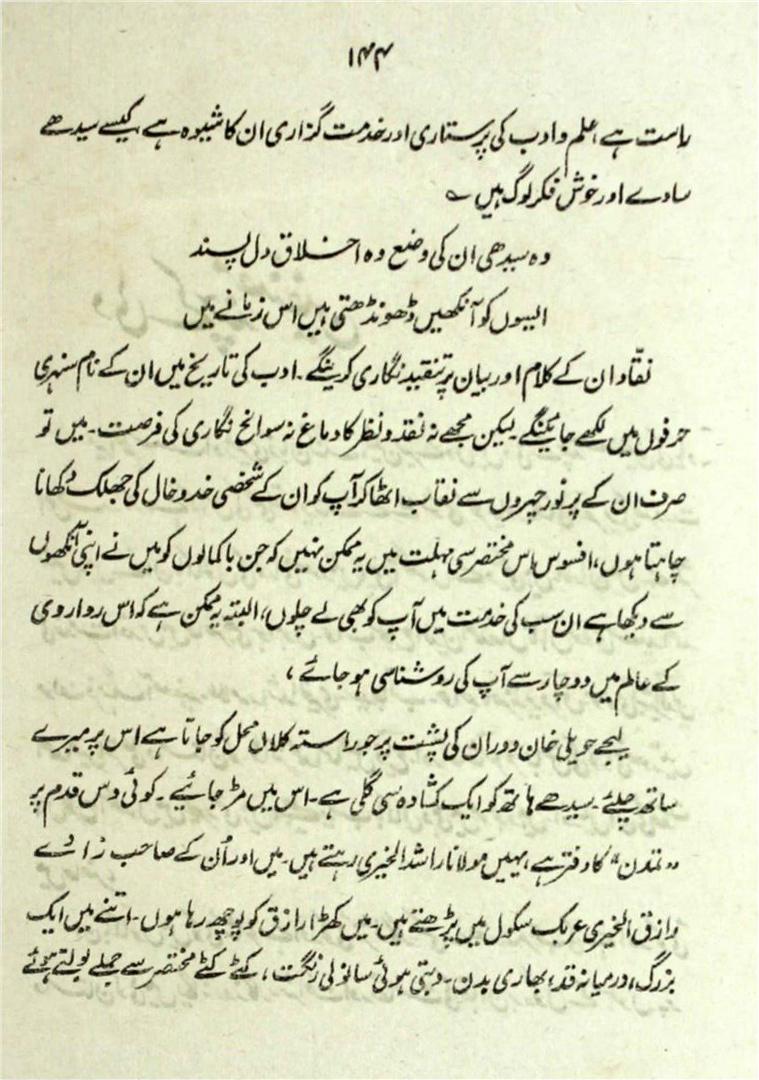 ۱۴۴
راست ہے، علم و ادب کی پرستاری اور خدمت گزاری ان کا شیوہ ہے، کیسے سیدھے
سادے اور خوش فکر لوگ ہیں ؎
وہ سیدھی ان کی وضع وہ اخلاق دل پسند
ایسوں کو آنکھیں ڈھونڈھتی ہیں اس زمانے میں
نقّاد ان کے کلام اور بیان پر تنقید نگاری کرینگے۔ ادب کی تاریخ میں ان کے نام سنہری
حرفوں میں لکھے جائینگے۔ لیکن مجھے نہ نقد و نظر کا دماغ نہ سوانح نگاری کی فرصت۔ میں تو
صرف ان کے پر نور چہروں سے نقاب اٹھا کر آپ کو ان کے شخصی خد و خال کی جھلک دکھانا
چاہتا ہوں، افسوس اس مختصر سی مہلت میں یہ ممکن نہیں کہ جن باکمالوں کو میں نے اپنی آنکھوں
سے دیکھا ہے ان سب کی خدمت میں آپ کو بھی لے چلوں، البتہ یہ ممکن ہے کہ اس روا روی
کے عالم میں دو چار سے آپ کی روشناسی ہو جائے،
لیجے حویلی خان دوران کی پشت پر جو راستہ کلاں محل کو جاتا ہے اس پر میرے
ساتھ چلئے۔ سیدھے ہاتھ کو ایک کشادہ سی گلی ہے۔ اس میں مڑ جائیے۔ کوئی دس قدم پر
”تمدن“ کا دفتر ہے، یہیں مولانا راشد الخیری رہتے ہیں۔ میں اور اُن کے صاحب زادے
رازق الخیری عربک سکول میں پڑھتے ہیں۔ میں کھڑا رازق کو پوچھ رہا ہوں۔ اتنے میں ایک
بزرگ، درمیانہ قد، بھاری بدن۔ دبتی ہوئی سانولی رنگت، کٹے کٹے مختصر سے جملے بولتے ہوئے